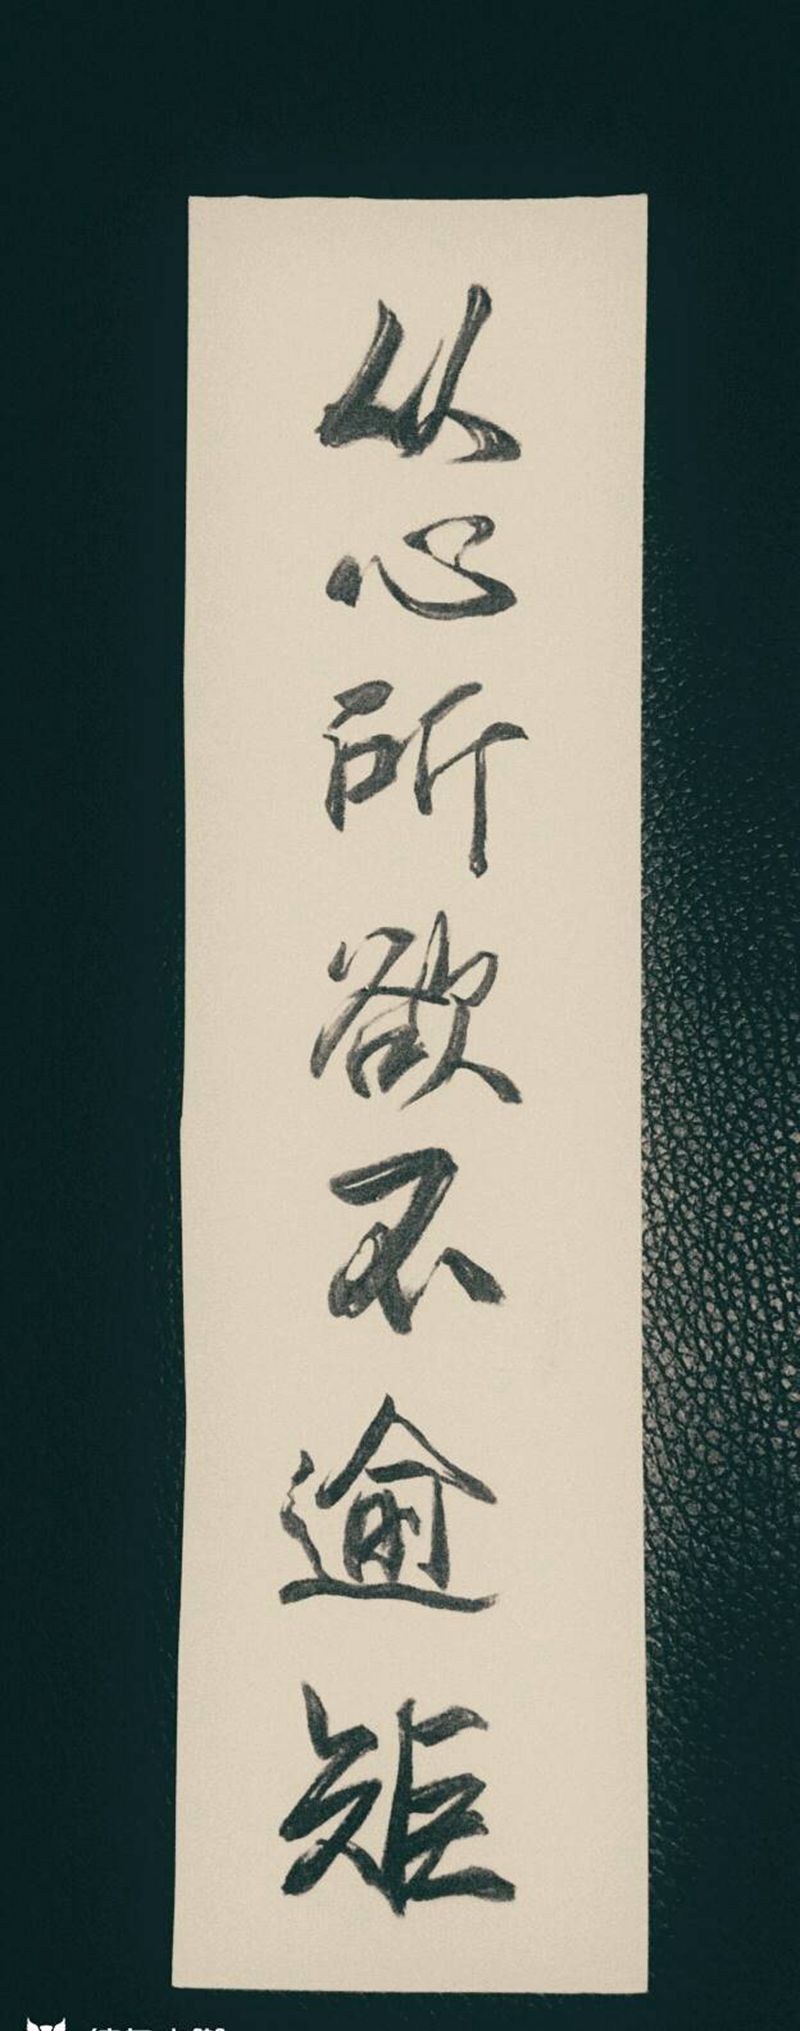 从心所欲不逾矩